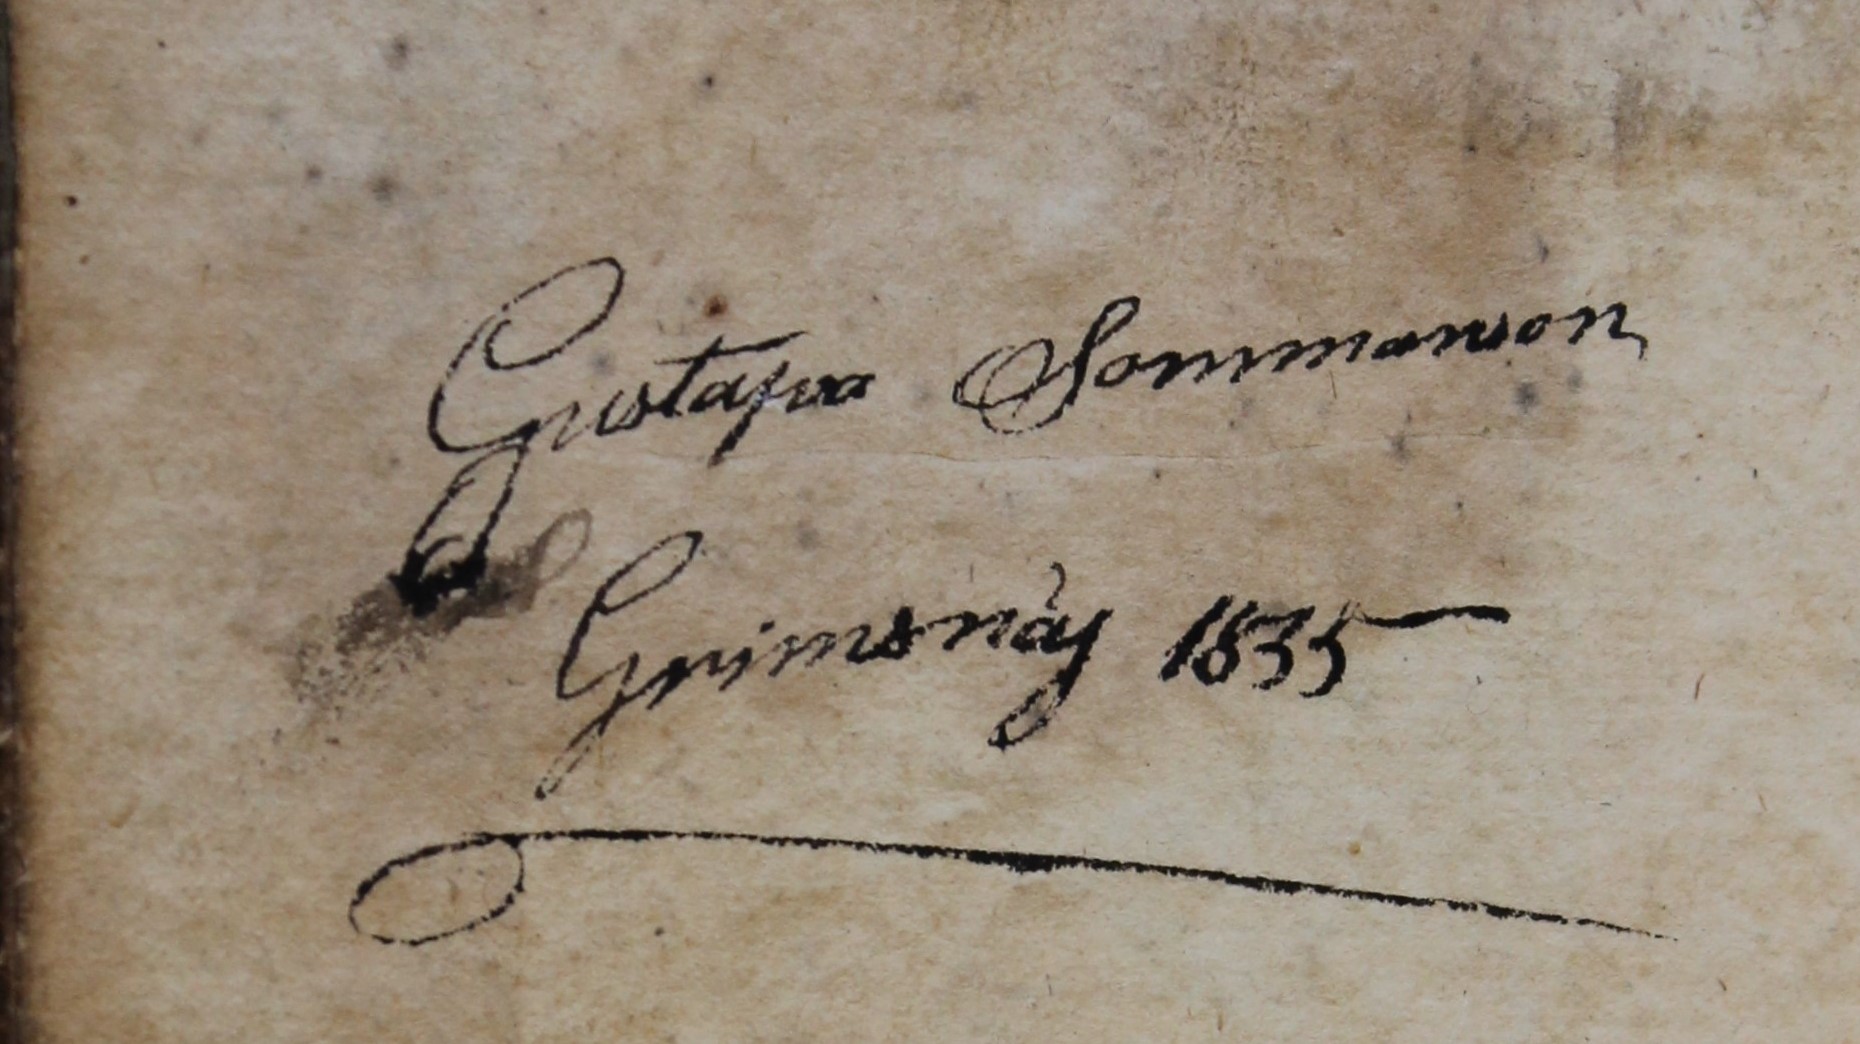 Gustafva Sommarson
Grimsnäs 1835